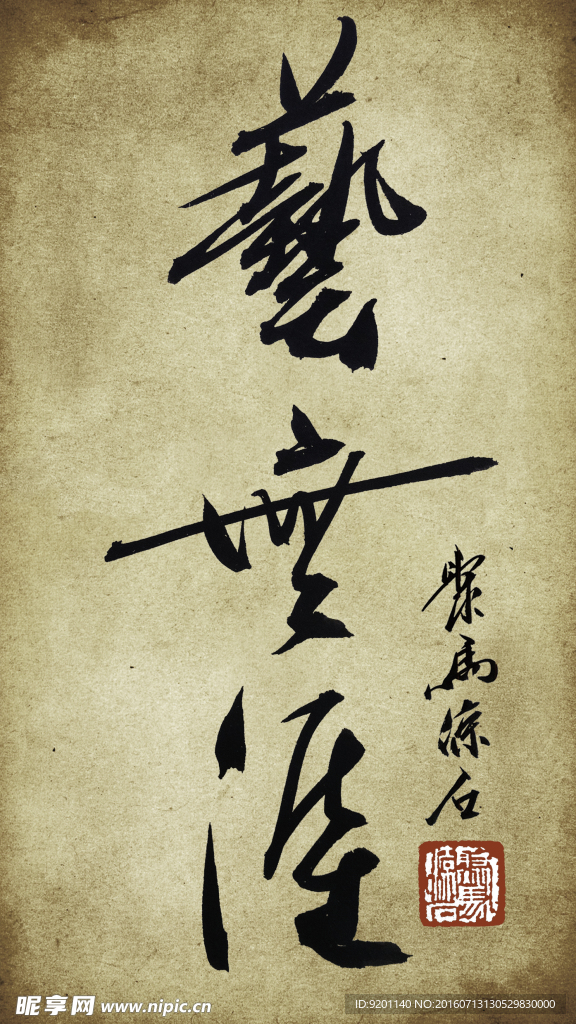 藝無涯
馬涼石
昵享网 www.nipic.cn
ID:9201140 NO:20160713130529830000